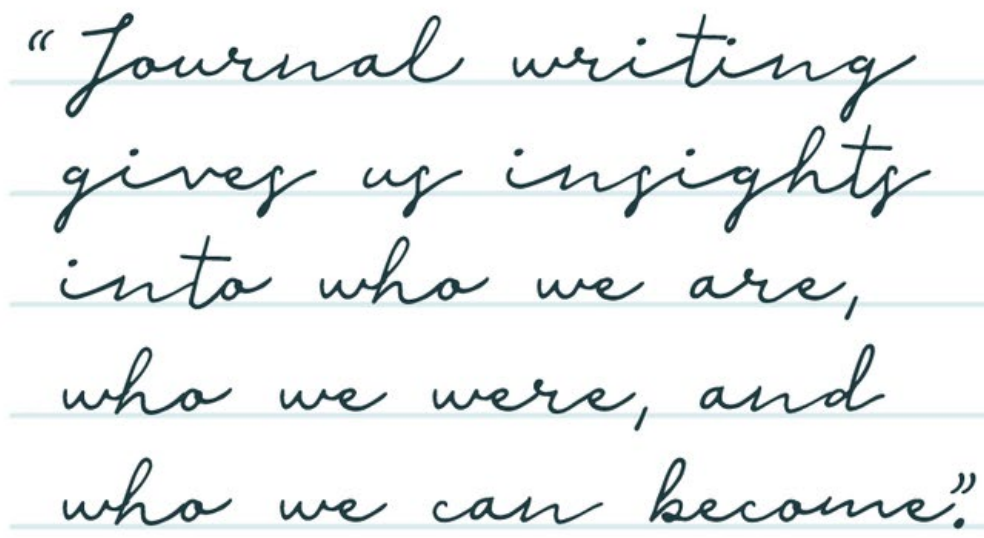 “Journal writing
gives us insights
into who we are,
who we were, and
who we can become.”